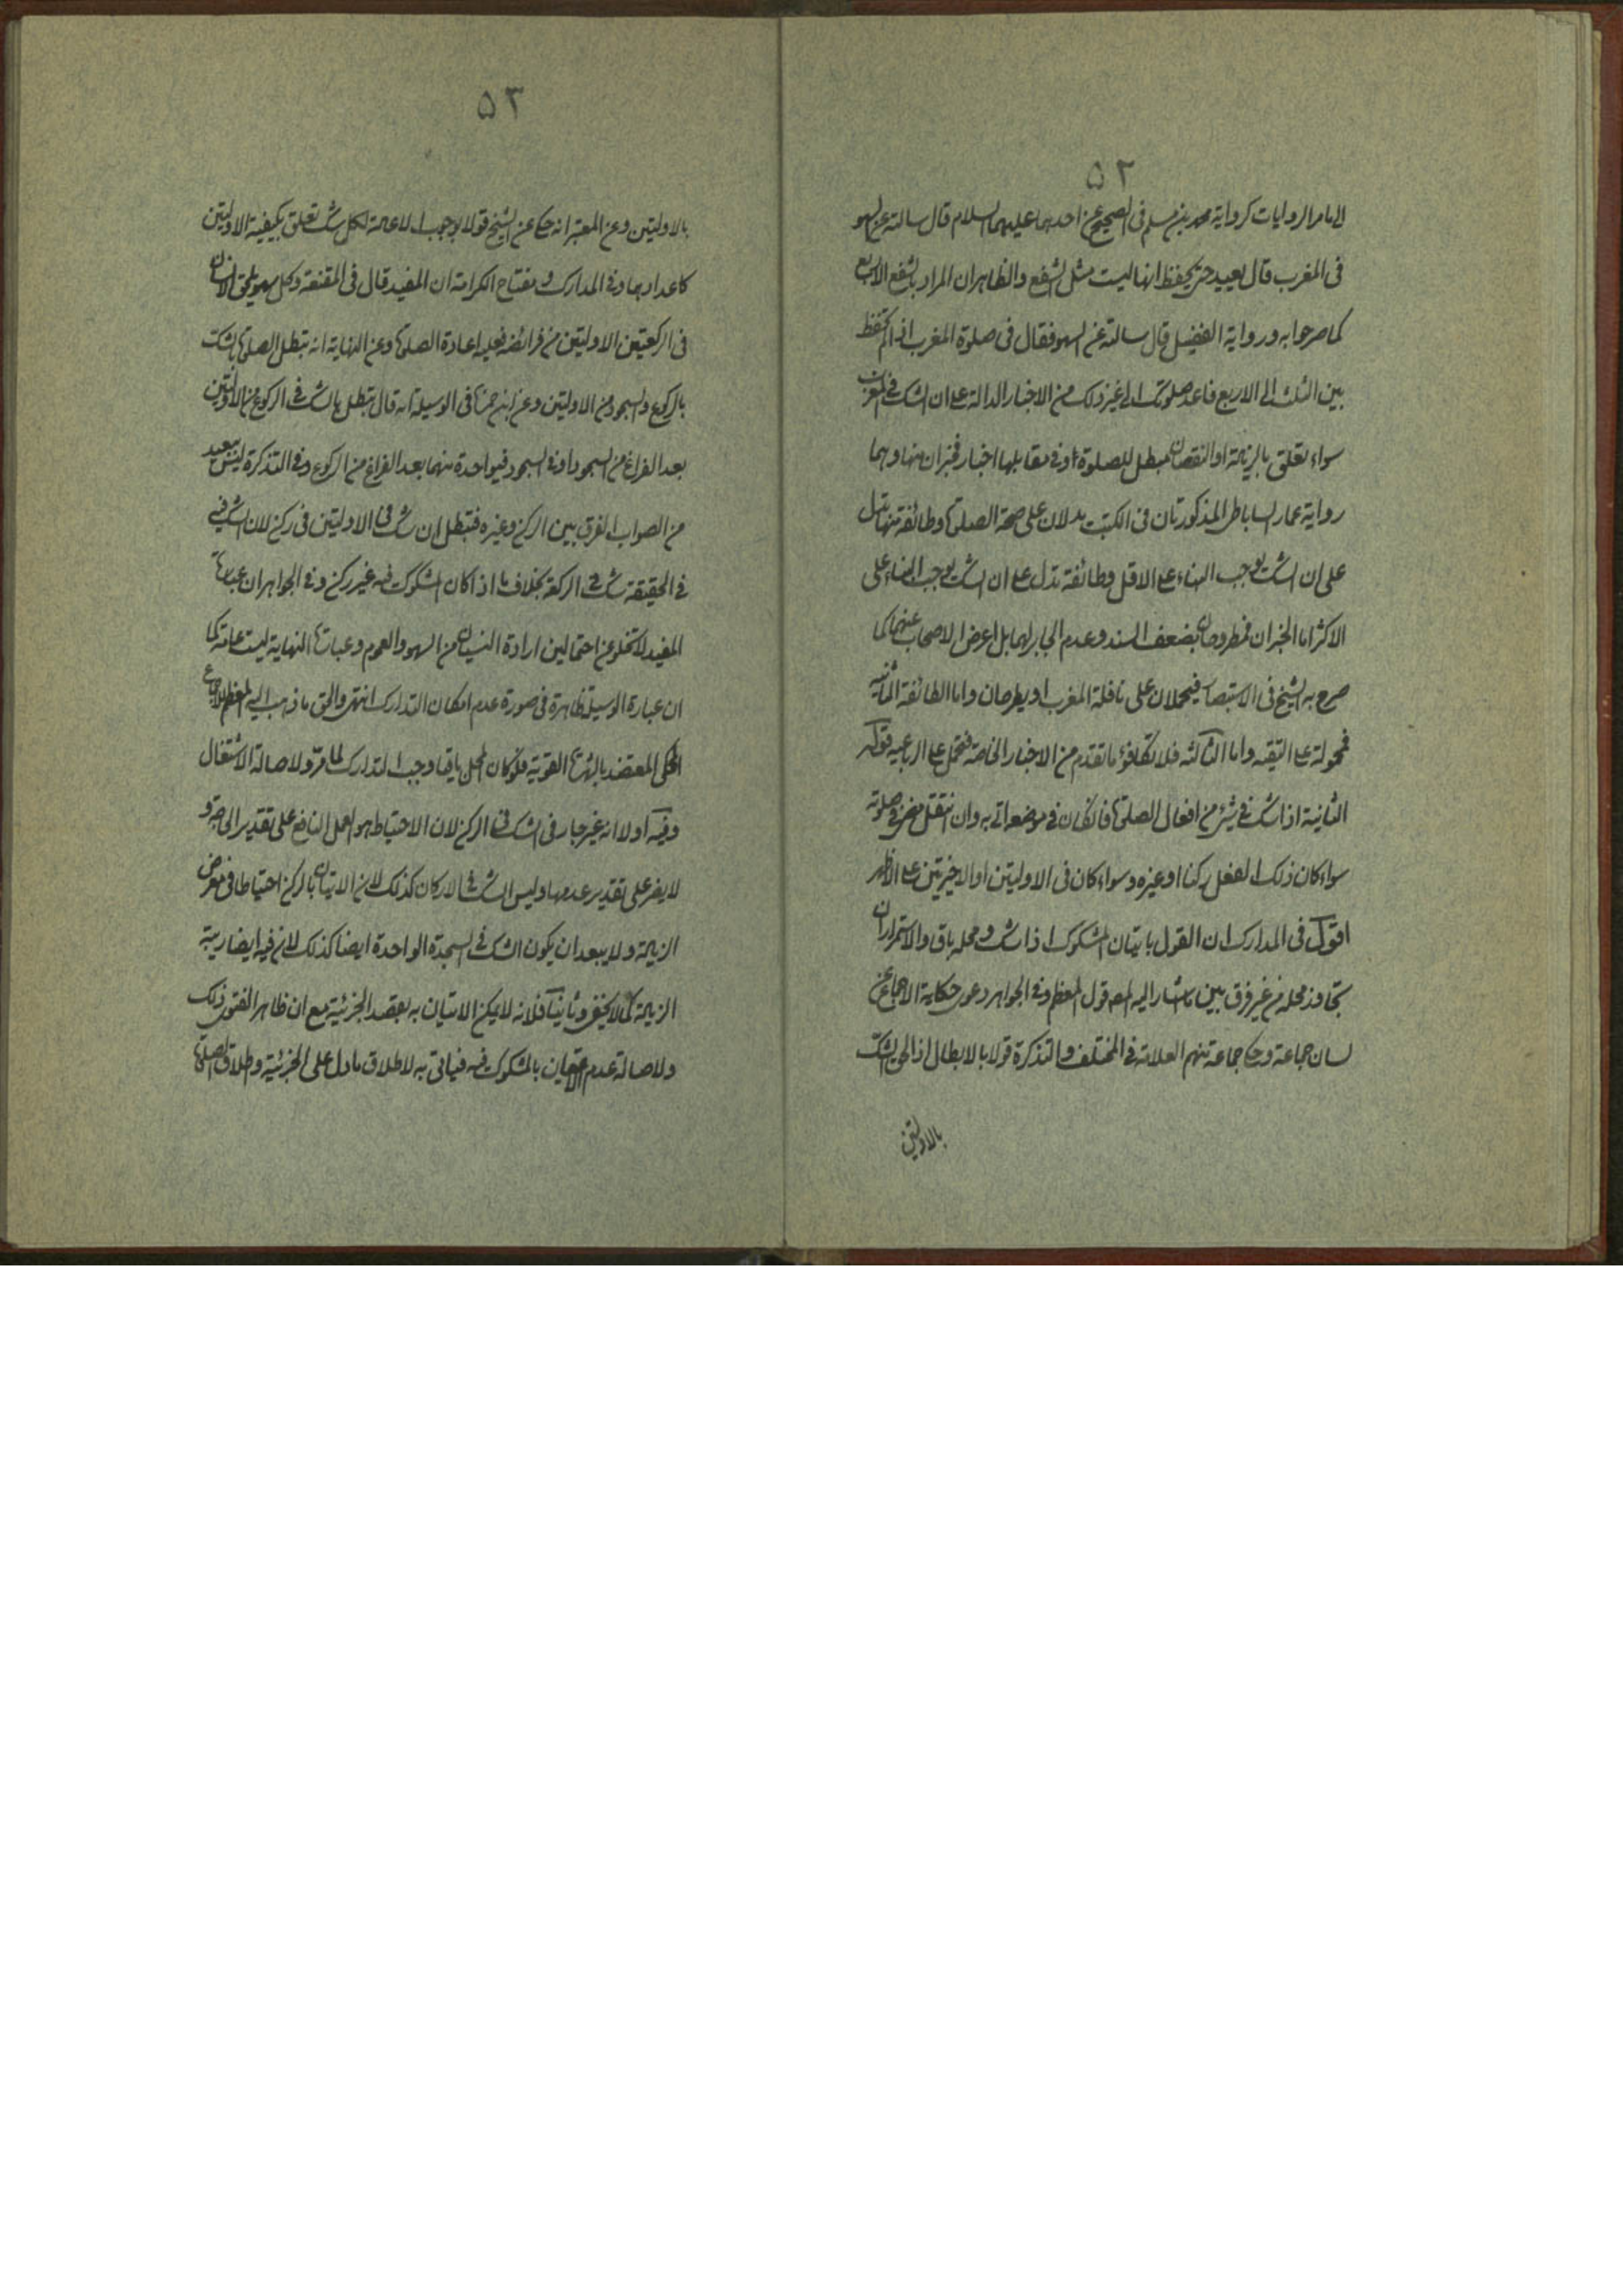 ۵۲
الى ما مر الروايات كرواية محمد بن مسلم فى الصحيح عن احدهما عليهما السلام قال سالته عن السهو
فى المغرب قال يعيد حتى يحفظ انها ليست مثل الشفع والظاهر ان المراد بالشفع الاربع
كما صرحوا به ورواية الفضيل قال سالته عن السهو فقال فى صلوة المغرب اذا لم تحفظ
بين الثلث الى الاربع فاعد صلوتك الى غير ذلك من الاخبار الدالة على ان الشك فى المغرب
سواء تعلق بالزيادة او النقصان مبطل للصلوة وفى مقابلها اخبار فخبران منها وهما
رواية عمار الساباطى المذكورتان فى الكتب يدلان على صحة الصلوة وطائفة منها تدل
على ان الشك يوجب البناء على الاقل وطائفة تدل على ان الشك يوجب البناء على
الاكثر اما الخبران فمطروحان بضعف السند وعدم الجابر لهما بل اعرض الاصحاب عنهما كما
صرح به الشيخ فى الاستبصار فيحملان على نافلة المغرب او يطرحان واما الطائفة الثانيه
فمحولة على التقيه واما الثالثه فلا تكافؤ ما تقدم من الاخبار الخاصة فتحمل على الرباعيه قوله
الثانية اذا شك فى شئ من افعال الصلوة فان كان فى موضعه اتى به وان انتقل مضى فى صلوته
سواء كان ذلك الفعل ركنا او غيره وسواء كان فى الاوليتين او الاخيرتين على الاظهر
اقول فى المدارك ان القول باتيان المشكوك اذا شك و محله باق والاستمرار ان
تجاوز محله من غير فرق بين ما اشار اليه المص قول المعظم وفى الجواهر دعوى حكاية الاجماع عن
لسان جماعة وحكى جماعة منهم العلامة فى المختلف والتذكرة قولا بالابطال اذا لحق الشك
بالاوليتين
۵۳
بالاوليتين وعن المعتبر انه حكى عن الشيخ قولا بوجوب الاعادة لكل شك تعلق بكيفية الاوليتين
كاعدادهما وفى المدارك و مفتاح الكرامة ان المفيد قال فى المقنعة وكل سهو يلحق الانسان
فى الركعتين الاوليتين من فرائضه فعليه اعادة الصلوة وعن النهاية انه تبطل الصلوة بالشك
بالركوع والسجود من الاوليتين وعن ابن حمزة فى الوسيلة انه قال تبطل بالشك فى الركوع من الاوليتين
بعد الفراغ من السجود او فى السجود فيه واحدة منهما بعد الفراغ من الركوع وفى التذكرة ليس ببعيد
من الصواب الفرق بين الركن وغيره فتبطل ان شك فى الاوليتين فى ركن لان الشك فيه
فى الحقيقة شك فى الركعة بخلاف ما اذا كان المشكوك فيه غير ركن وفى الجواهر ان عبارة
المفيد لا تخلو عن احتمالين ارادة النسيان من السهو والعموم وعبارة النهاية ليست عامة كما
ان عبارة الوسيلة ظاهرة فى صورة عدم امكان التدارك انتهى والحق ما ذهب اليه المعظم للاجماع
المحكى المعتضد بالشهرة القوية فلو كان المحل باقيا وجب التدارك لما مر ولاصالة الاشتغال
وفيه اولا انه غير جار فى الشك فى الركن لان الاحتياط هو العمل النافع على تقدير الحاجة و
لا يضر على تقدير عدمها وليس الشك فى الاركان كذلك لان الاتيان بالركن احتياطا فى معرض
الزيادة ولا يبعد ان يكون الشك فى السجدة الواحدة ايضا كذلك لان فيه ايضا ريبة
الزيادة كما لا يخفى وثانيا فلانه لا يمكن الاتيان به بقصد الجزئية مع ان ظاهر الفتوى ذلك
ولاصالة عدم الاتيان بالمشكوك فيه فياتى به لاطلاق ما دل على الجزئية واطلاق الصلوة